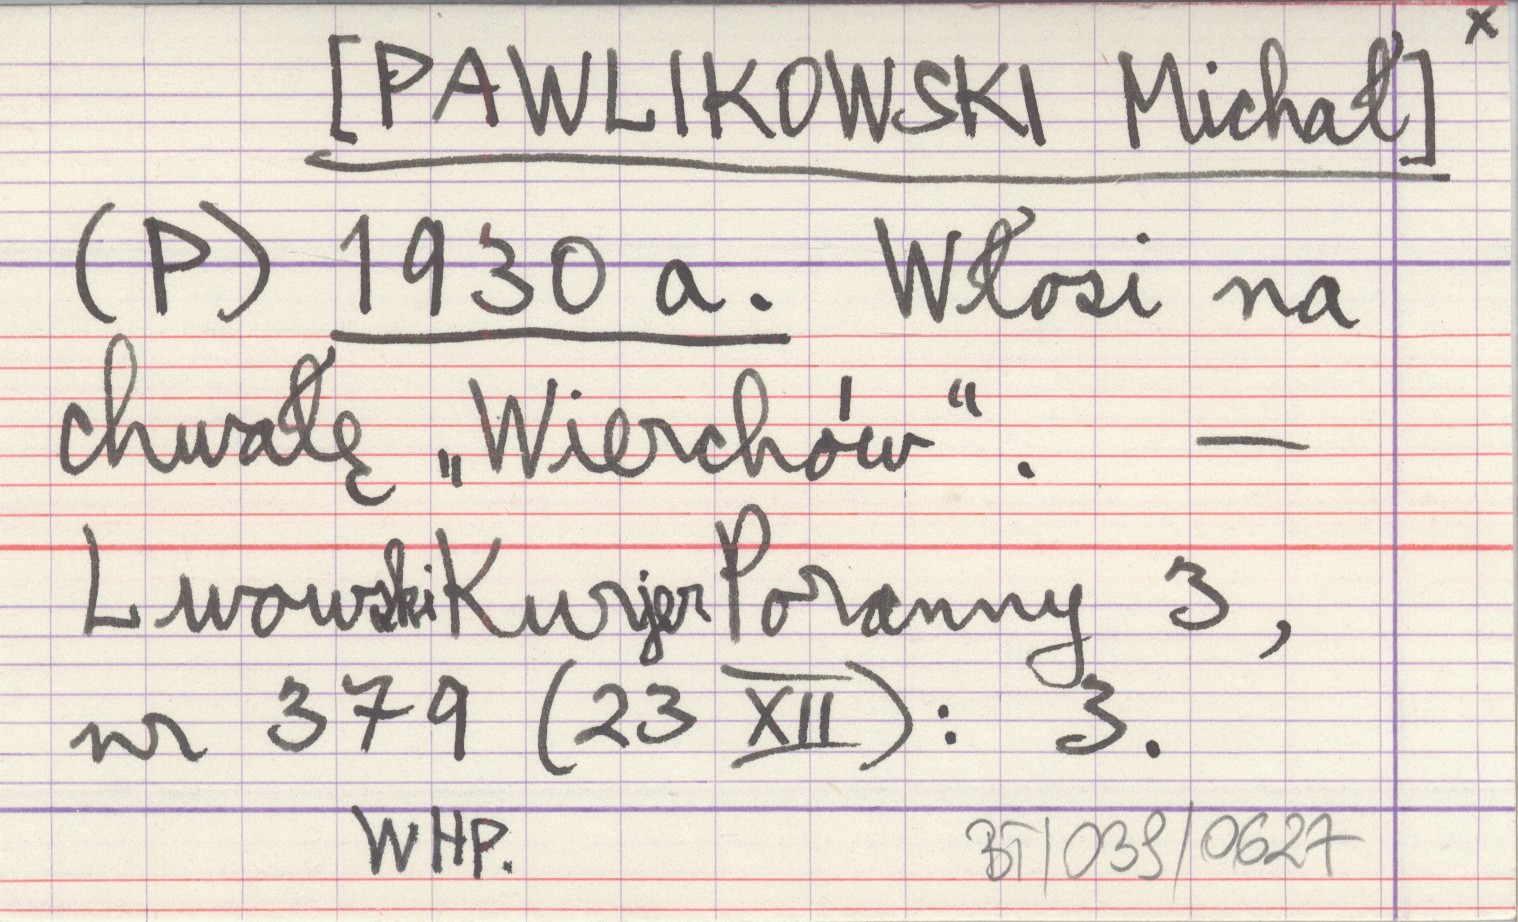 x
[PAWLIKOWSKI Michał]
(P) 1930 a. Włosi na
chwałę „Wierchów“. —
Lwowski Kurjer Poranny 3,
nr 379 (23 XII): 3.
WHP.
BT/039/0627